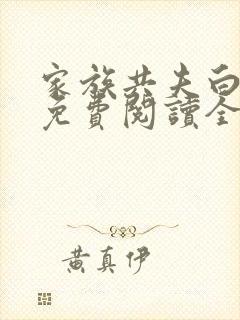 家族共夫白
免費閱讀全
黃真伊